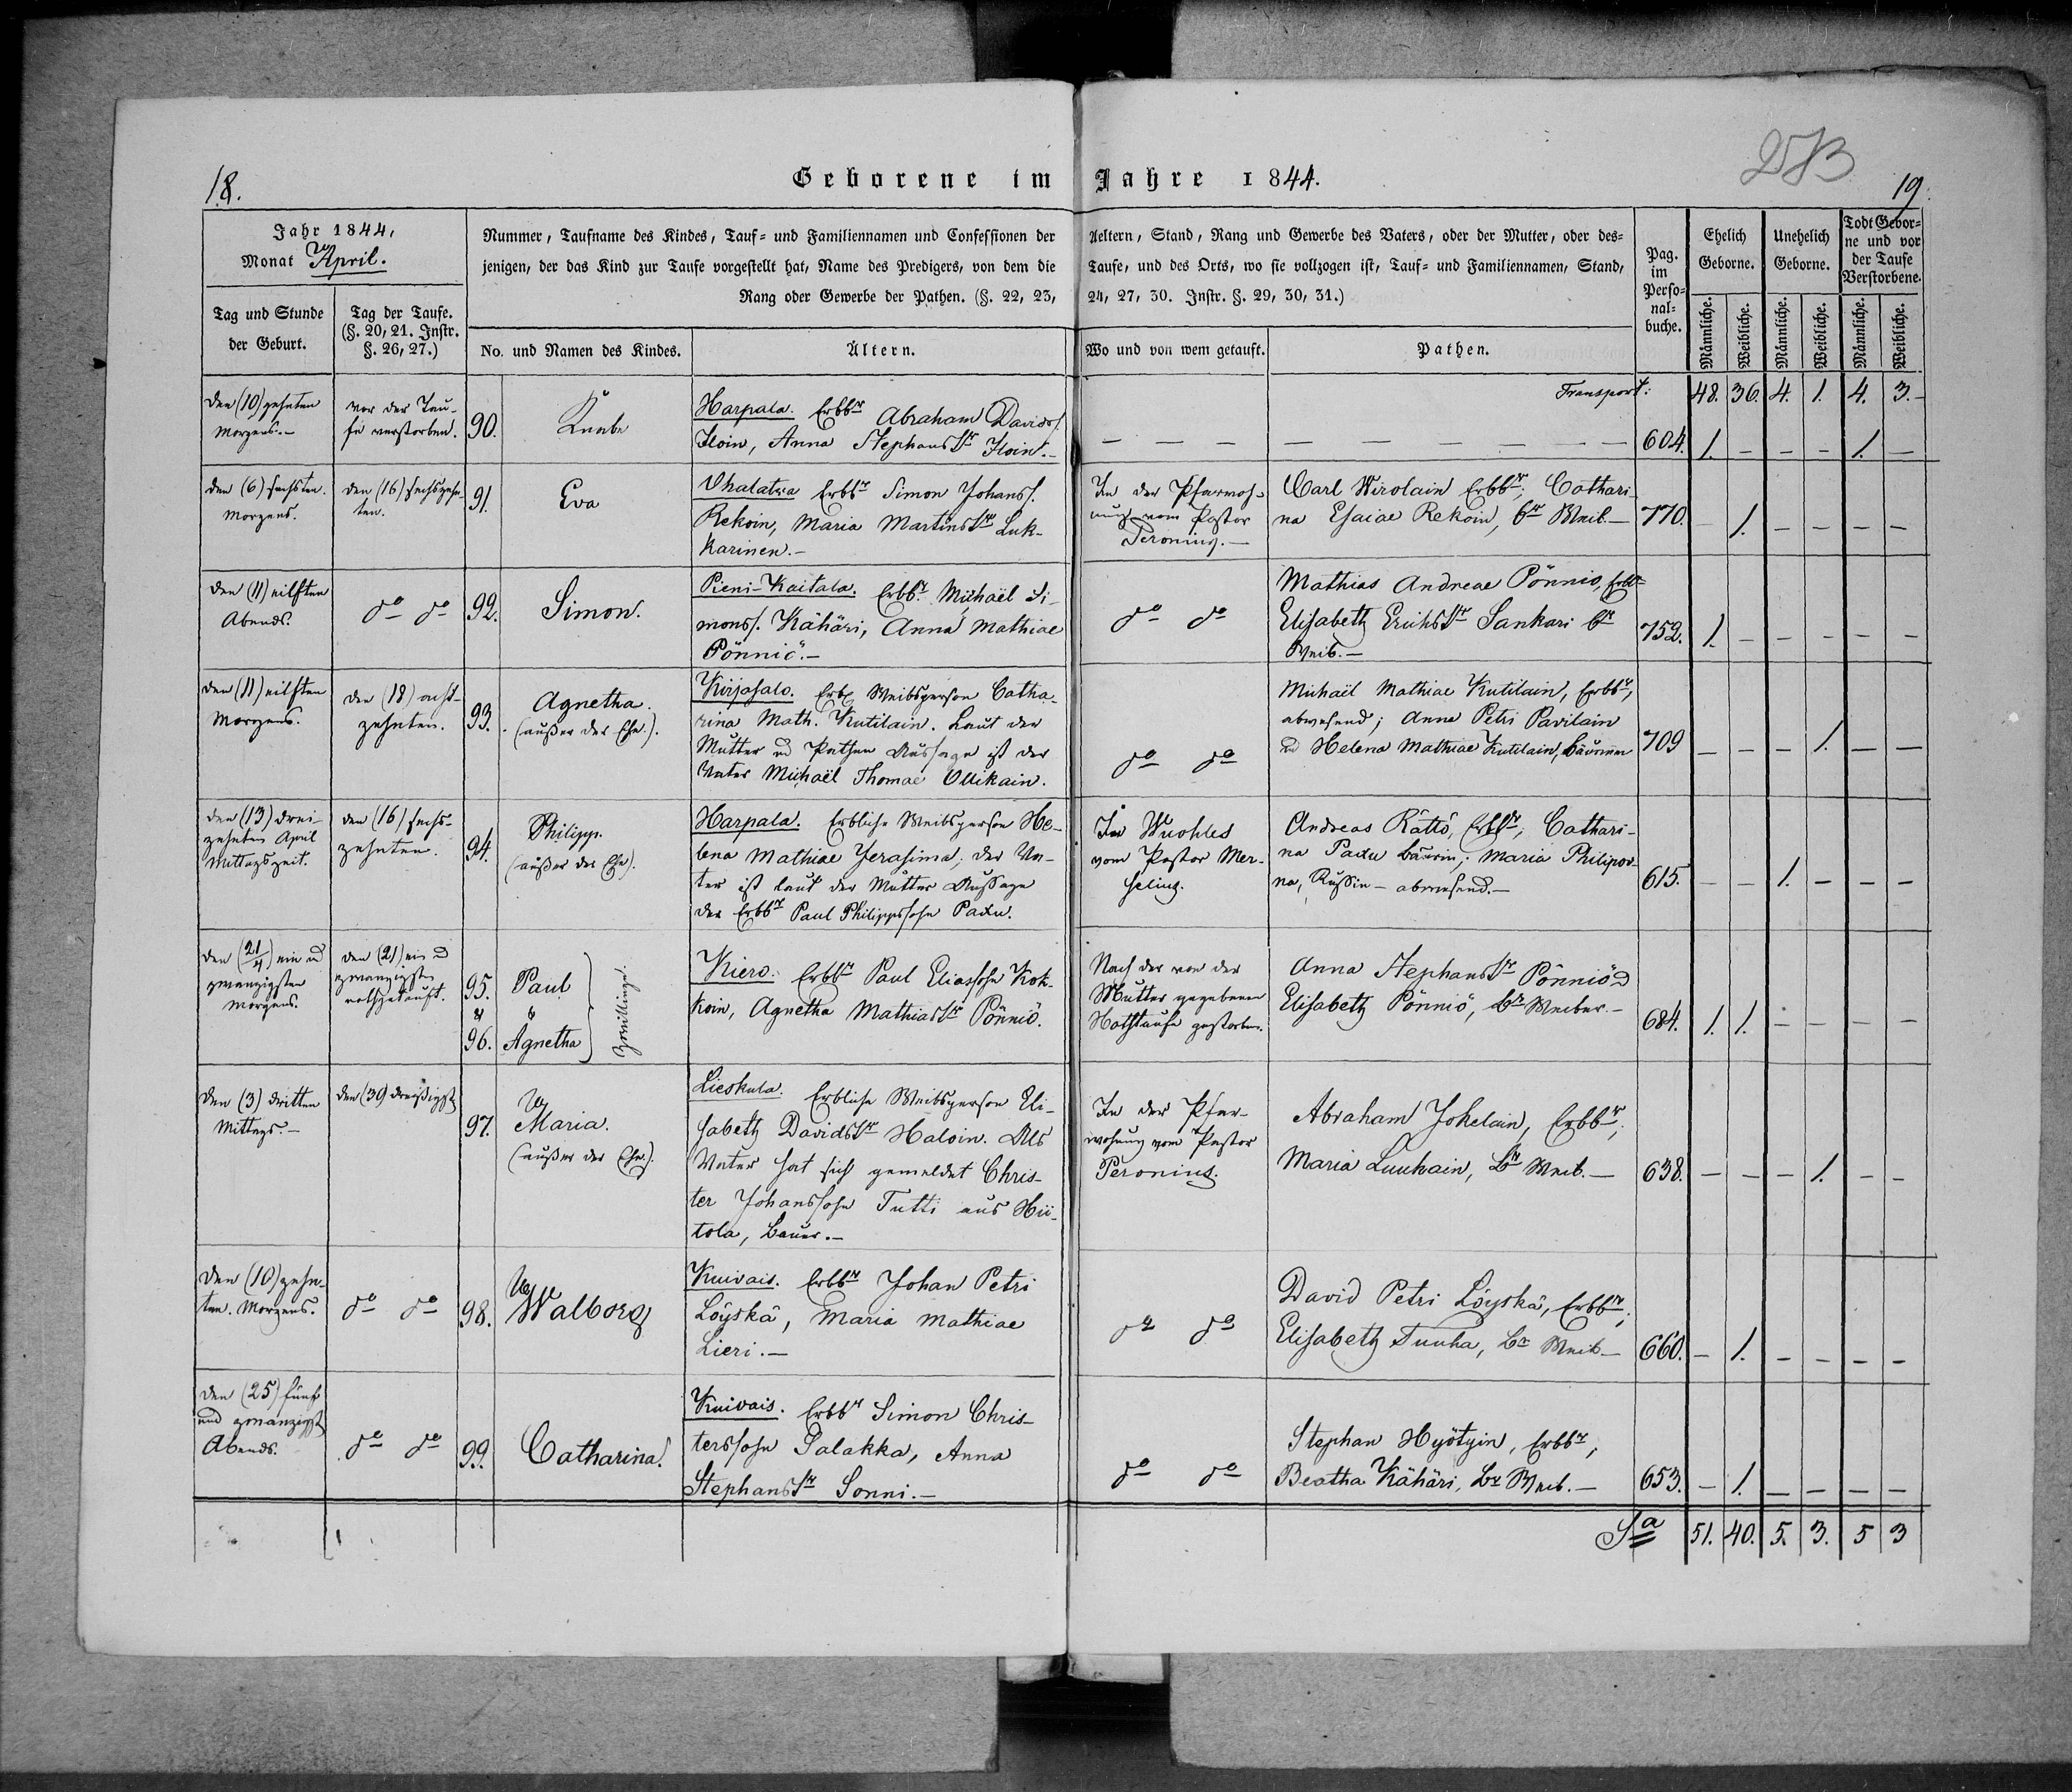 18.
Geborene im Jahre 1844.
253
19.
Jahr 1844,
Monat April.
Tag und Stunde
der Geburt.
Tag der Taufe.
(§. 20, 21. Instr.
§. 26, 27.)
Nummer, Taufname des Kindes, Tauf- und Familiennamen und Confessionen der
jenigen, der das Kind zur Taufe vorgestellt hat, Name des Predigers, von dem die
Rang oder Gewerbe der Pathen. (§. 22, 23,
No. und Namen des Kindes.
Ältern.
Aeltern, Stand, Rang und Gewerbe des Vaters, oder der Mutter, oder des-
Taufe, und des Orts, wo sie vollzogen ist, Tauf- und Familiennamen, Stand,
24, 27, 30. Instr. §. 29, 30, 31.)
Wo und von wem getauft.
Pathen.
Pag.
im
Perso-
nal-
buche.
Ehelich
Geborne.
Unehelich
Geborne.
Todt Gebor-
ne und vor
der Taufe
Verstorbene.
Männliche.
Weibliche.
Männliche.
Weibliche.
Männliche.
Weibliche.
Transport: 48. 36. 4. 1. 4. 3.
den (10) zehnten
Morgens.
vor der Tau-
fe verstorben.
90.
Knabe
Harpala. Erbbr Abraham Davids/.
Iloin, Anna Stephanstr Iloin.
— — — — — — — — —
604. 1. — — — 1. —
den (6) sechsten.
Morgens.
den (16) sechszehn-
ten.
91.
Eva
Uhalatwa Erbbr Simon Johans/.
Rekoin, Maria Martinstr Luk-
karinen.
In der Pfarrwoh-
nung vom Pastor
Peronius.
Carl Wirolain Erbbr; Cathari-
na Esaiae Rekoin, br Weib.
770. — 1. — — — —
den (11) eilften
Abends.
do do
92.
Simon.
Pieni-Kaitala. Erbbr. Michaël Si-
mons/. Kähäri, Anna Mathiae
Pönniö.
do do
Mathias Andreae Pönniö, Erbbr
Elisabeth Erichstr Sankari br
Weib.
752. 1. — — — — —
den (11) eilften
Morgens.
den (18) acht-
zehnten.
93.
Agnetha.
(außer der Ehe.).
Kirjasalo. Erbl Weibsperson Catha-
rina Math. Kutilain. Laut der
Mutter und Pathen Aussage ist der
Vater Michaël Thomae Ollikain.
do do
Michaël Mathiae Kutilain, Erbbr,
abwesend; Anna Petri Pavilain
und Helena Mathiae Kutilain, Bäurinnen
709 — — — 1. — —
den (13) drei-
zehnten April
Mittagszeit.
den (16) sechs-
zehnten.
94.
Philipp.
(außer der Ehe).
Harpala. Erbliche Weibsperson He-
lena Mathiae Jerasima; der Va-
ter ist laut der Mutter Aussage
der Erbbr Paul Philippssohn Paxu.
In Wuohles
vom Pastor Mer-
seling.
Andreas Rättö, Erbbr, Cathari-
na Paxu Bäurin; Maria Philipow-
na, Russin - abwesend.
615. — — 1. — — —
den (21/4) ein und
zwanzigsten
Morgens.
den (21) ein und
zwanzigsten
nothgetauft.
95.
&
96.
Paul
&
Agnetha
Zwillinge
Kiero. Erbbr Paul Eliassohn Kok-
koin, Agnetha Mathiastr Pönniö.
Nach der von der
Mutter gegebenen
Nothtaufe gestorben.
Anna Stephanstr Pönniö und
Elisabeth Pönniö, br Weiber.
684. 1. 1. — — — —
den (3) dritten
Mittags.
den (30) dreißigst
97.
Maria.
(außer der Ehe.).
Lieskula. Erbliche Weibsperson Eli-
sabeth Davidstr Haloin. Als
Vater hat sich gemeldet Chris-
ter Johanssohn Tutti aus Hii-
tola, Bauer.
In der Pfar-
wohnung vom Pastor
Peronius.
Abraham Jokelain, Erbbr,
Maria Luukain, br Weib.
638. — — — 1. — —
den (10) zehn-
ten. Morgens.
do do
98.
Walborg
Kuivais. Erbbr Johan Petri
Löyskä, Maria Mathiae
Lieri.
do do
David Petri Löyskä, Erbbr,
Elisabeth Tuuha, br Weib
660. — 1. — — — —
den (25) fünf
und zwanzigst
Abends.
do do
99.
Catharina.
Kuivais. Erbbr Simon Chris-
terssohn Palakka, Anna
Stephanstr Sonni.
do do
Stephan Hyötyin, Erbbr,
Beatha Kähäri, br Weib.
653. — 1. — — — —
Sa 51. 40. 5. 3. 5 3